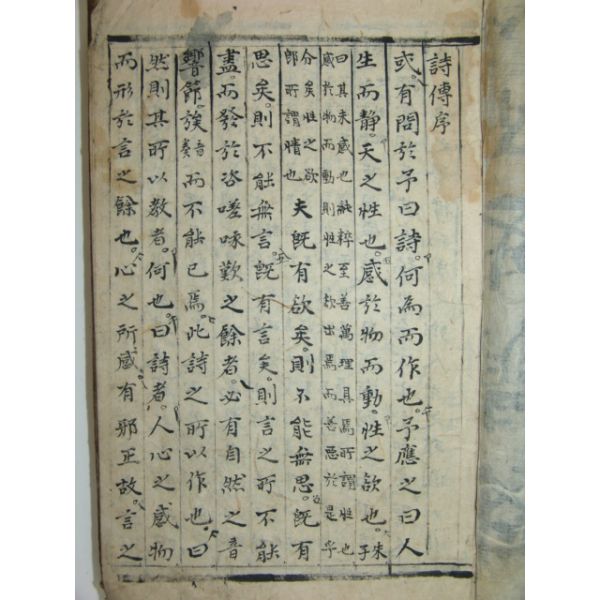 詩傳序
或有問於予曰詩何為而作也予應之曰人
生而静天之性也感於物而動性之欲也朱子
曰其未感也純粹至善萬理具焉所謂性也
感於物而動則性之欲出焉而善惡於是乎
分矣性之欲
即所謂情也
夫旣有欲矣則不能無思旣有
思矣則不能無言旣有言矣則言之所不能
盡而發於咨嗟咏歎之餘者必有自然之音
響節族音奏而不能已焉此詩之所以作也曰
然則其所以教者何也曰詩者人心之感物
而形於言之餘也心之所感有邪正故言之